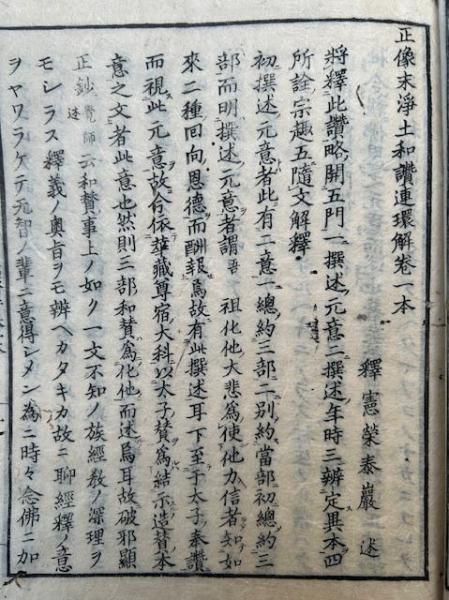 正像末淨土和讚連環解卷一本
釋憲榮泰巖述
將釋此讚略開五門一撰述元意二撰述年時三辨定異本四
所詮宗趣五隨文解釋
初撰述元意者此有二意一總約三部二別約當部初總約三
部而明撰述元意者謂吾 祖化他大悲爲使他力信者知如
來二種回向恩德而酬報焉故有此撰述耳下至于太子奉讚
而視此元意故今依雄藏尊宿大科以太子賛爲結示造賛本
意之文者此意也然則三部和賛爲化他而述焉耳故破邪顯
正鈔覺師述云和賛事上ノ如ク一文不知ノ族經敎ノ深理ヲ
モシラス釋義ノ奧旨ヲモ辨ヘカタキカ故ニ聊經釋ノ意
ヲヤワラケテ无智ノ輩ニ意得シメン為ニ時々念佛ニ加